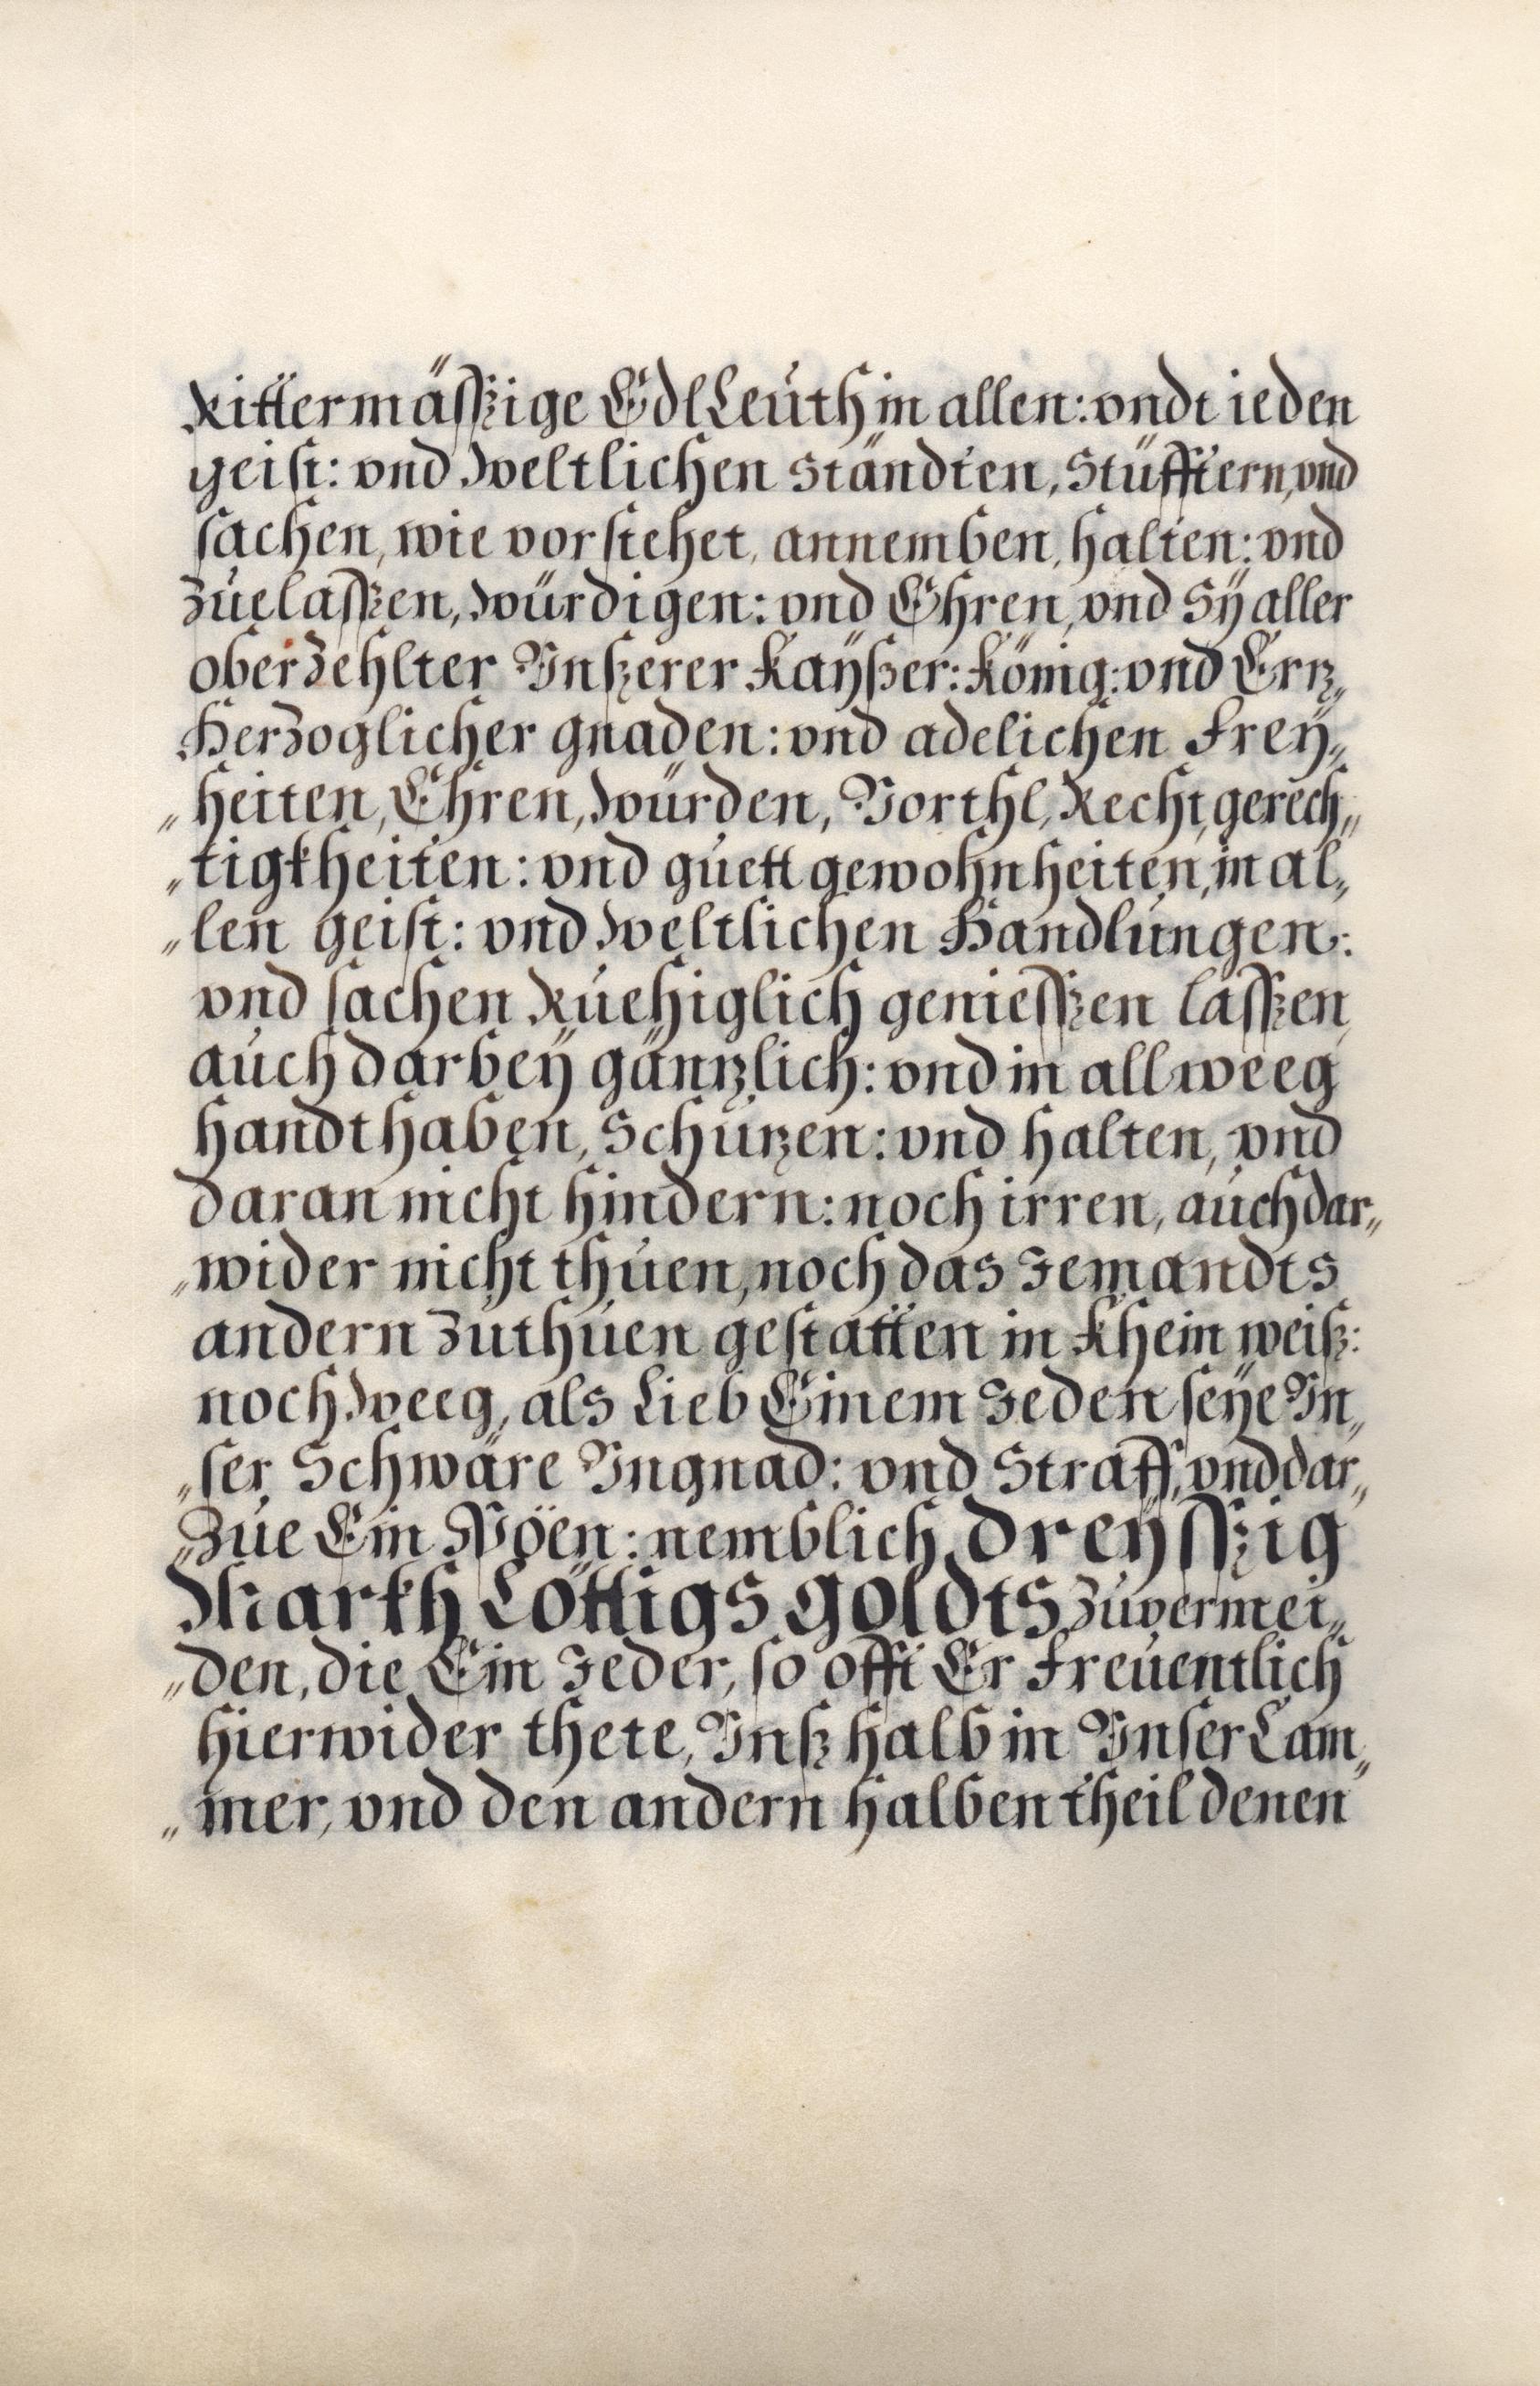 Rittermässzige Edl Leüth in allen: vndt ieden
geist: vnd Weltlichen Ständten, Stüfftern, vnd
sachen, wie vorstehet, annemben, halten: vnd
Zúelasszen, Würdigen: vnd Ehren, vnd Sÿ aller
oberZehlter Vnßerer Kaÿßer: König: vnd Ertz„
Herzoglicher gnaden: vnd adelichen Freÿ„
„heiten, Ehren, Würden, Vorthl, Recht, gerech„
„tigkheiten: vnd gúett gewohnheiten, in al„
„len geist: vnd Weltlichen Handlúngen:
vnd sachen Rúehiglich geniesszen lasszen,
aúch darbeÿ gäntzlich: vnd in allweeg
handthaben, Schützen: vnd halten, vnd
daran nicht hindern: noch irren, aúch dar„
„wider nicht thúen, noch das Jemandts
andern Zúthúen gestatten in Khein weiß:
noch Weeg, als Lieb Einem Jeden seÿe Vn„
„ser Schwäre Vngnad: vnd Straff, vnd dar„
„Zúe Ein Pöen: nemblich dreÿsszig
Markh Löttigs goldts Zúvermei„
„den, die Ein Jeder, so offt Er Freúentlich
hierwider thete, Vnß halb in Vnser Cam„
„mer, vnd den andern halben theil denen